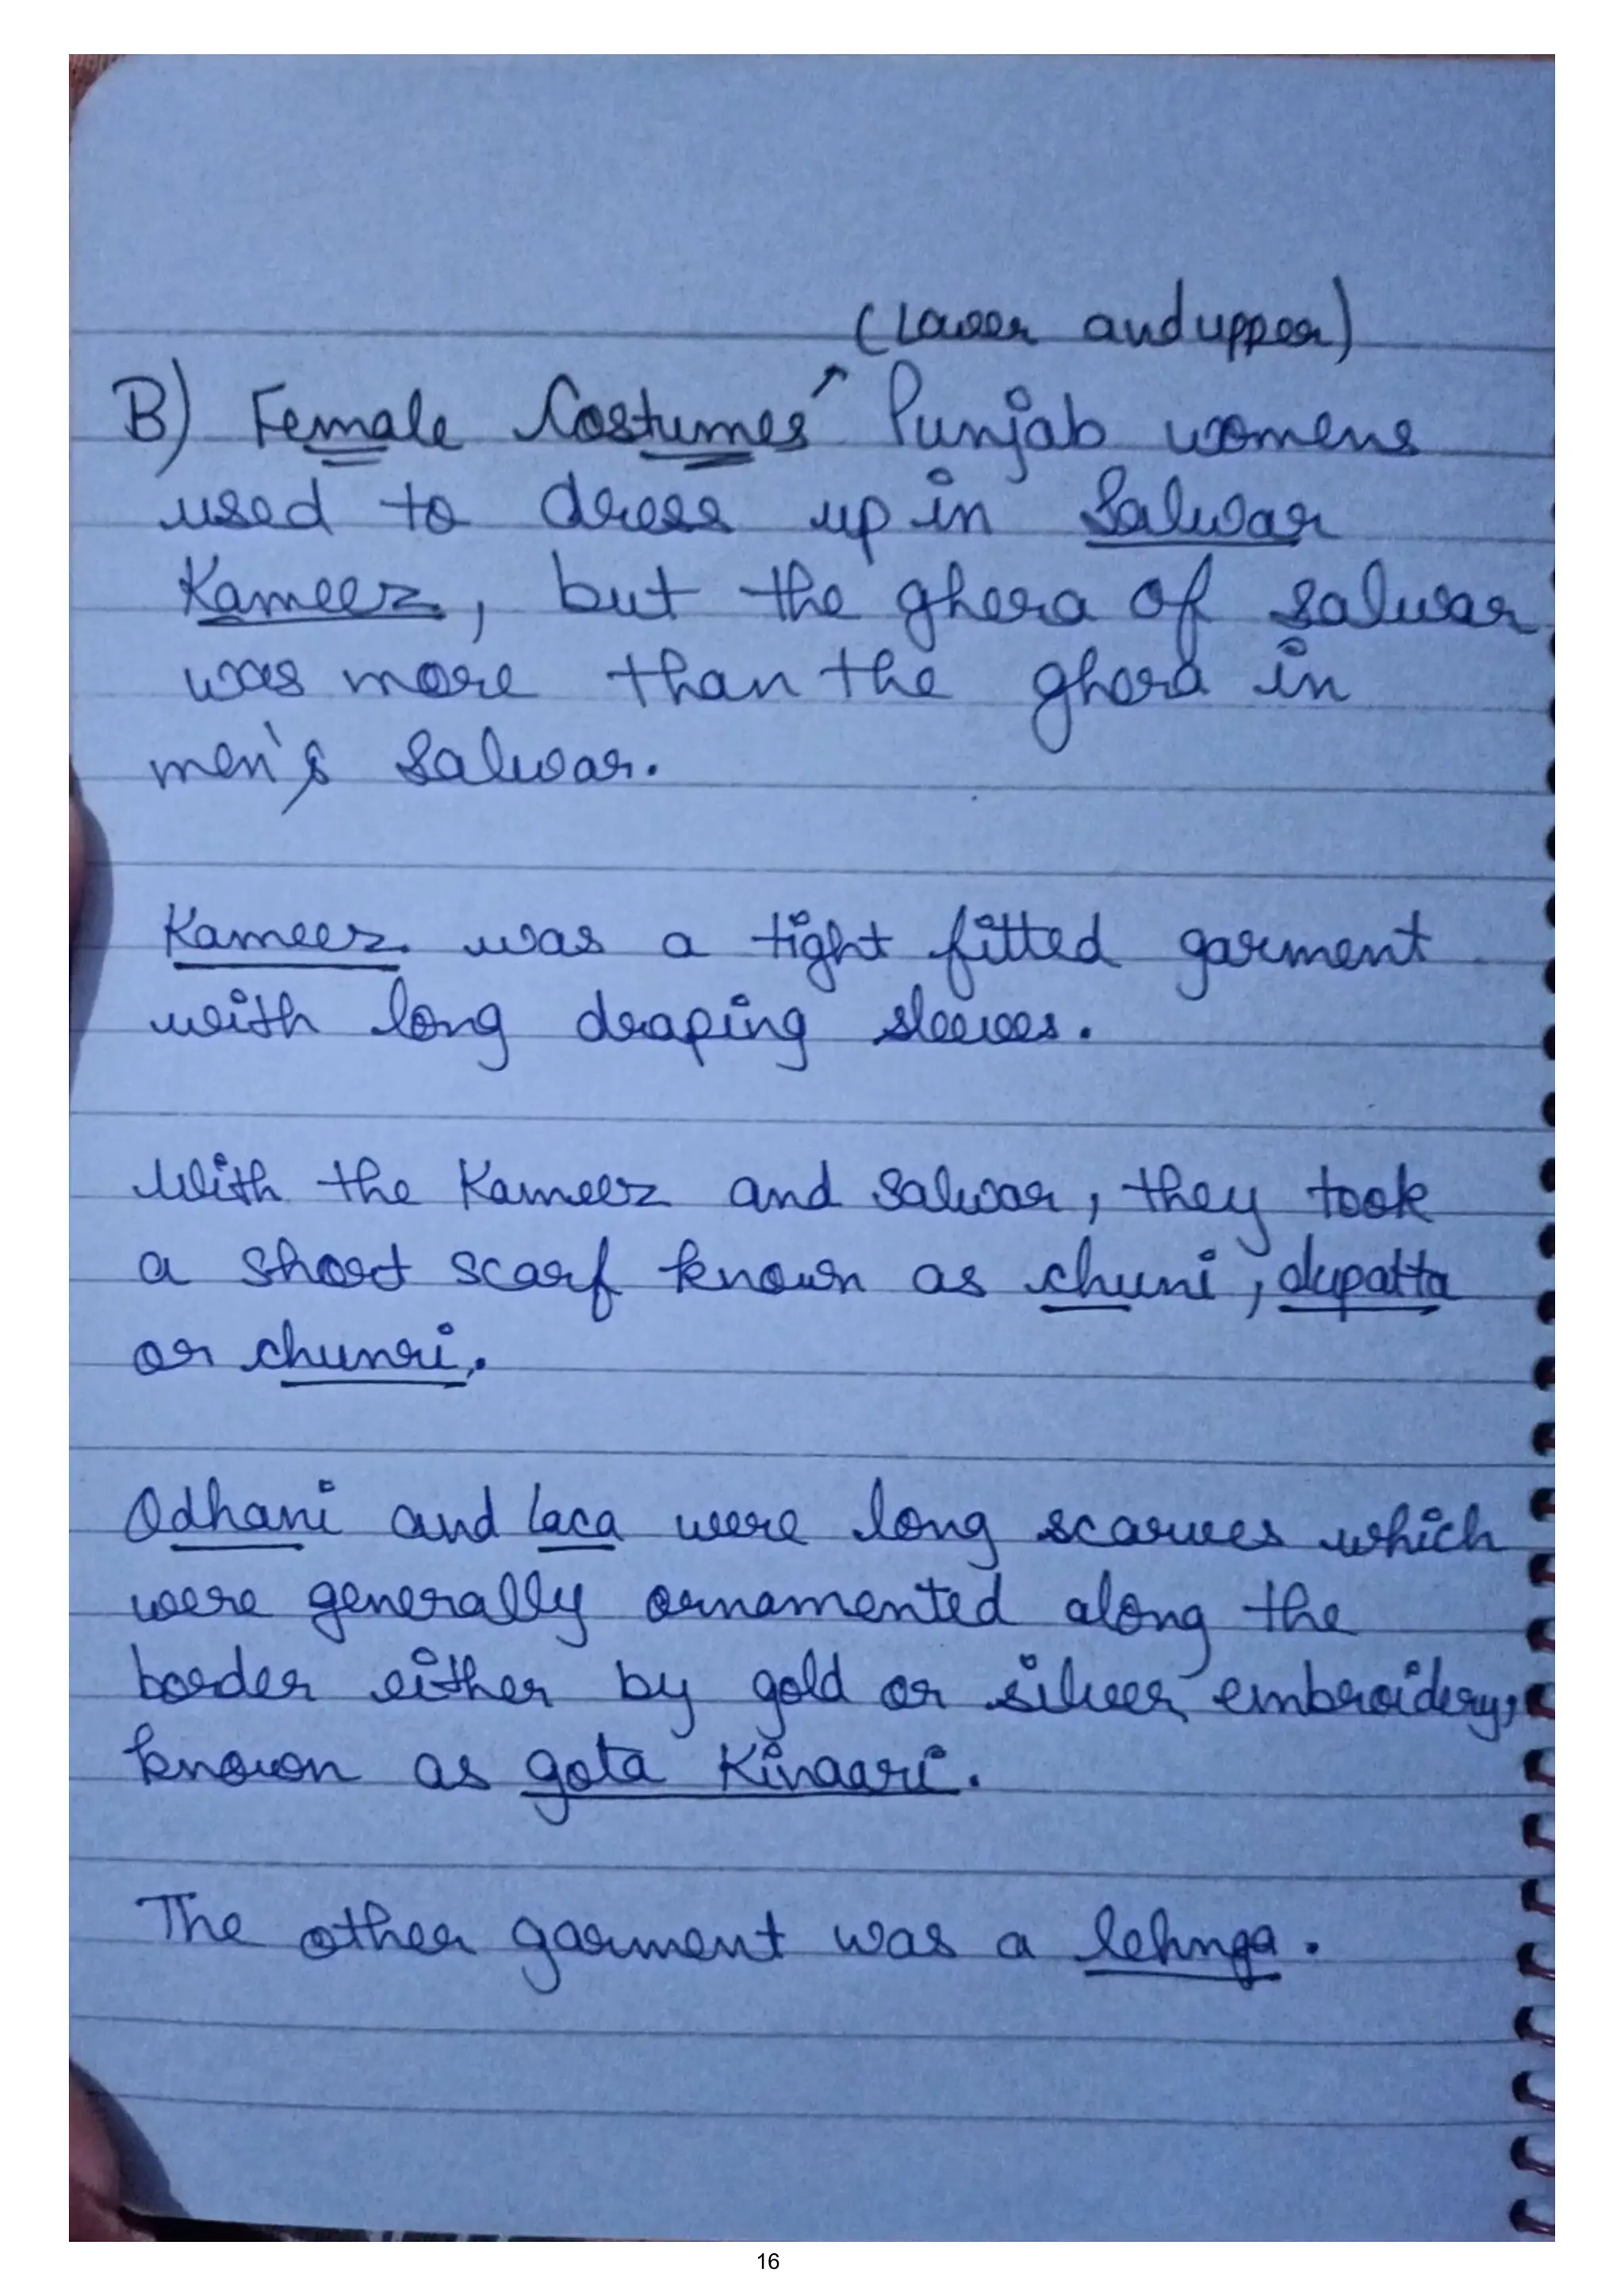 (Lower and upper)
B) Female Costumes↗ Punjab womens
used to dress up in Salwar
Kameez, but the ghera of salwar
was more than the ghera in
men's salwar.
Kameez was a tight fitted garment
with long draping sleeves.
With the Kameez and salwar, they took
a short scarf known as chuni, dupatta
or chunri.
Odhani and laca were long scarves which
were generally ornamented along the
border either by gold or silver embroidery,
known as gota Kinaari.
The other garment was a lehnga.
16